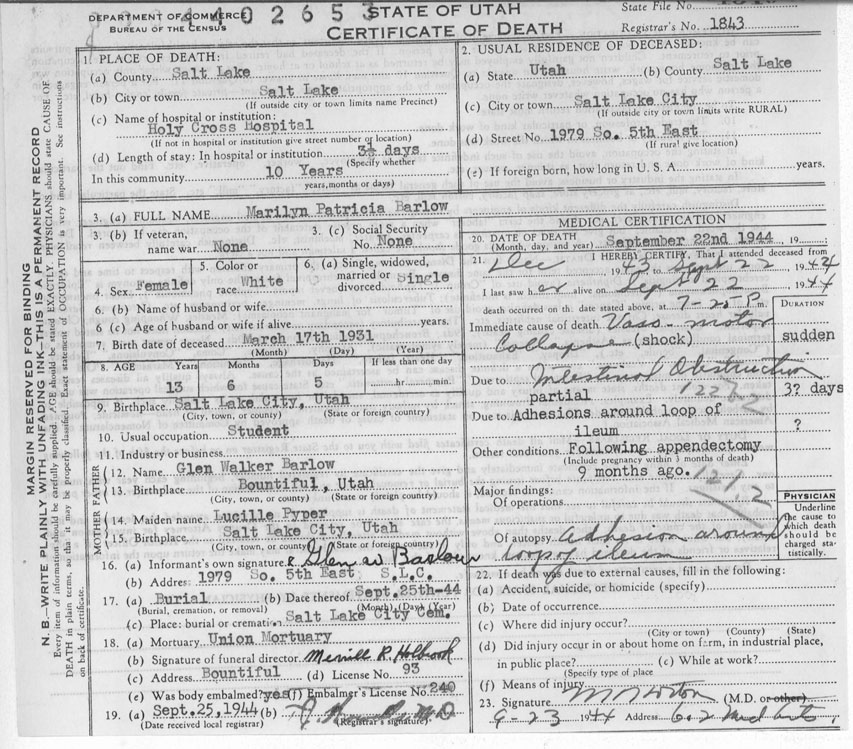 DEPARTMENT OF COMMERCE
BUREAU OF THE CENSUS
402653
STATE OF UTAH
CERTIFICATE OF DEATH
State File No.
Registrar's No. 1843
MARGIN RESERVED FOR BINDING
N. B.—WRITE PLAINLY WITH UNFADING INK—THIS IS A PERMANENT RECORD
Every item of information should be carefully supplied. AGE should be stated EXACTLY. PHYSICIANS should state CAUSE OF
DEATH in plain terms, so that it may be properly classified. Exact statement of OCCUPATION is very important. See instructions
on back of certificate.
1. PLACE OF DEATH:
(a) County Salt Lake
(b) City or town Salt Lake
(If outside city or town limits name Precinct)
(c) Name of hospital or institution:
Holy Cross Hospital
(If not in hospital or institution give street number or location)
(d) Length of stay: In hospital or institution 3½ days
(Specify whether
In this community 10 Years
years, months or days)
2. USUAL RESIDENCE OF DECEASED:
(a) State Utah (b) County Salt Lake
(c) City or town Salt Lake City
(If outside city or town limits write RURAL)
(d) Street No. 1979 So. 5th East
(If rural give location)
(e) If foreign born, how long in U. S. A. years.
3. (a) FULL NAME Marilyn Patricia Barlow
3. (b) If veteran,
name war None
3. (c) Social Security
No. None
4. Sex Female
5. Color or
race White
6. (a) Single, widowed,
married or
divorced Single
6. (b) Name of husband or wife
6 (c) Age of husband or wife if alive years.
7. Birth date of deceased March 17th 1931
(Month) (Day) (Year)
8. AGE Years Months Days If less than one day
13 6 5 hr. min.
9. Birthplace Salt Lake City, Utah
(City, town, or county) (State or foreign country)
10. Usual occupation Student
11. Industry or business
FATHER
12. Name Glen Walker Barlow
13. Birthplace Bountiful, Utah
(City, town, or county) (State or foreign country)
MOTHER
14. Maiden name Lucille Pyper
15. Birthplace Salt Lake City, Utah
(City, town, or county) (State or foreign country)
16. (a) Informant's own signature Glen W Barlow
(b) Addres: 1979 So. 5th East S.L.C.
17. (a) Burial (b) Date thereof Sept.25th-44
(Burial, cremation, or removal) (Month) (Day) (Year)
(c) Place: burial or cremation Salt Lake City Cem.
18. (a) Mortuary Union Mortuary
(b) Signature of funeral director Merrill R. Holbrook
(c) Address Bountiful (d) License No. 93
(e) Was body embalmed? yes (f) Embalmer's License No. 240
19. (a) Sept.25,1944 (b) M.D
(Date received local registrar) (Registrar's signature)
MEDICAL CERTIFICATION
20. DATE OF DEATH
(Month, day, and year) September 22nd 1944, 19
21. I HEREBY CERTIFY, That I attended deceased from
Dec 43 to Sept 22, 1944
I last saw her alive on Sept 22 1944
death occurred on the date stated above, at 7-25 P m.
DURATION
Immediate cause of death Vaso-motor
Collapse (shock) sudden
Due to Intestinal Obstruction
partial 122b2 3? days
Due to Adhesions around loop of
ileum ?
Other conditions Following appendectomy
(Include pregnancy within 3 months of death)
9 months ago.
121.2
Major findings:
Of operations
Of autopsy Adhesion around
loop of ileum
PHYSICIAN
Underline
the cause to
which death
should be
charged sta-
tistically.
22. If death was due to external causes, fill in the following:
(a) Accident, suicide, or homicide (specify)
(b) Date of occurrence
(c) Where did injury occur?
(City or town) (County) (State)
(d) Did injury occur in or about home on farm, in industrial place,
in public place? (c) While at work?
(Specify type of place
(f) Means of injury
23. Signature (M.D. or other)
9-23 1944 Address